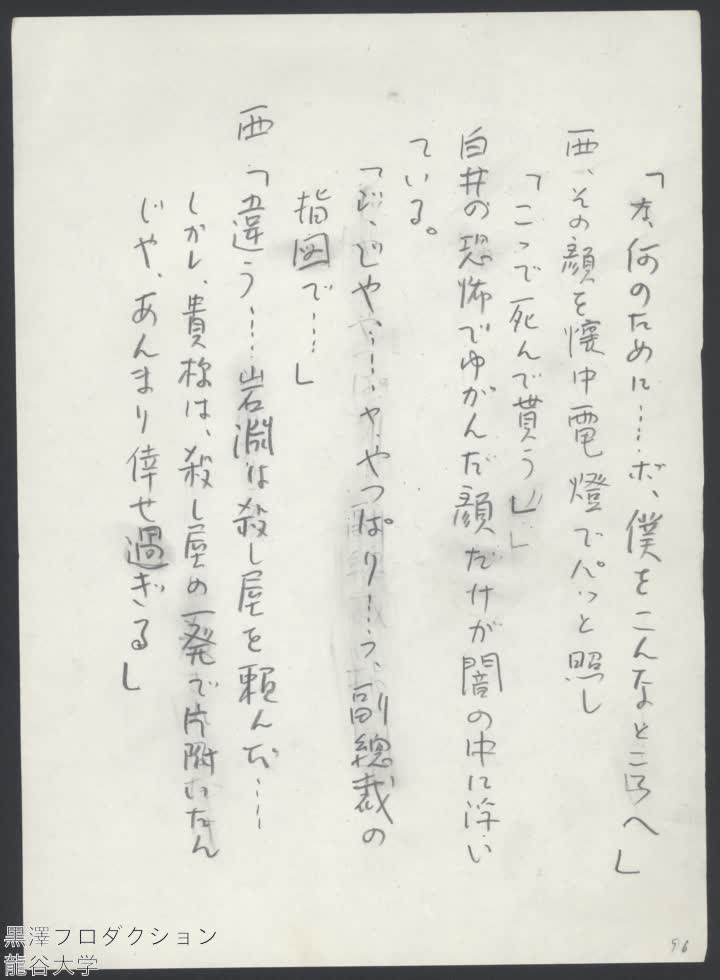 「な、何のために……ボ、僕をこんなところへ」
西、その顔を懐中電燈でパッと照し
「こゝで死んで貰う」
白井の恐怖でゆがんだ顔だけが闇の中に浮い
ている。
「じ、じや、……や、やつぱり……う、副總裁の
指図で……」
西「違う……岩淵は殺し屋を頼んだ……
しかし、貴様は、殺し屋の一発で片附いたん
じや、あんまり倖せ過ぎる」
96
黒澤プロダクション
龍谷大学